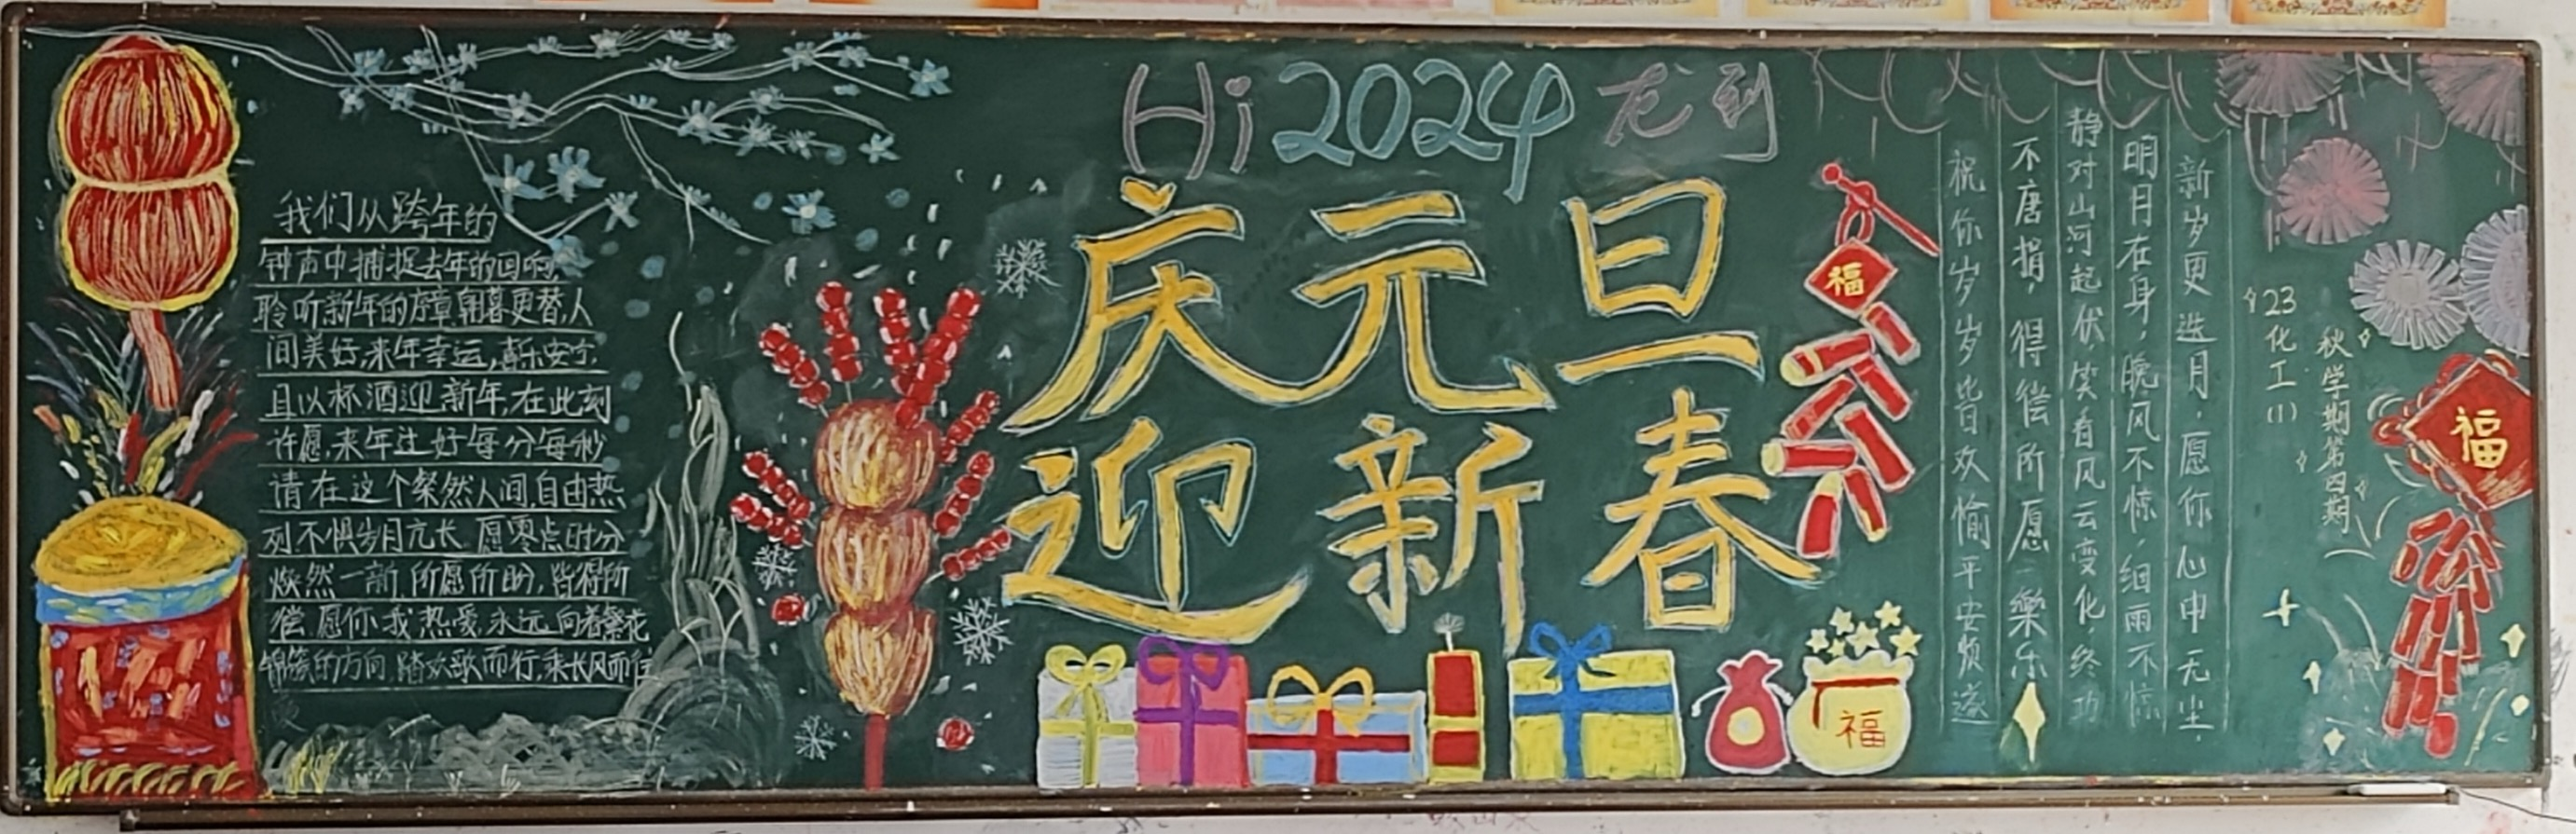 我们从跨年的
钟声中捕捉去年的回响,
聆听新年的序章,朝暮更替,人
间美好,来年幸运,喜乐安宁,
且以杯酒迎新年,在此刻
许愿,来年过好每分每秒
请在这个粲然人间,自由热
列不惧岁月亢长 愿零点时分
焕然一新,所愿所盼,皆得所
偿,愿你我热爱,永远向着繁花
锦簇的方向,踏欢歌而行,乘长风而往
Hi 2024 龙到
庆元旦
迎新春
福
福
新岁更迭月,愿你心中无尘,
明月在身,晚风不惊,细雨不惊
静对山河起伏,笑看风云变化,终功
不唐捐,得偿所愿 樂乐
祝你岁岁皆欢愉平安顺遂
23化工(1)
秋学期第四期
福